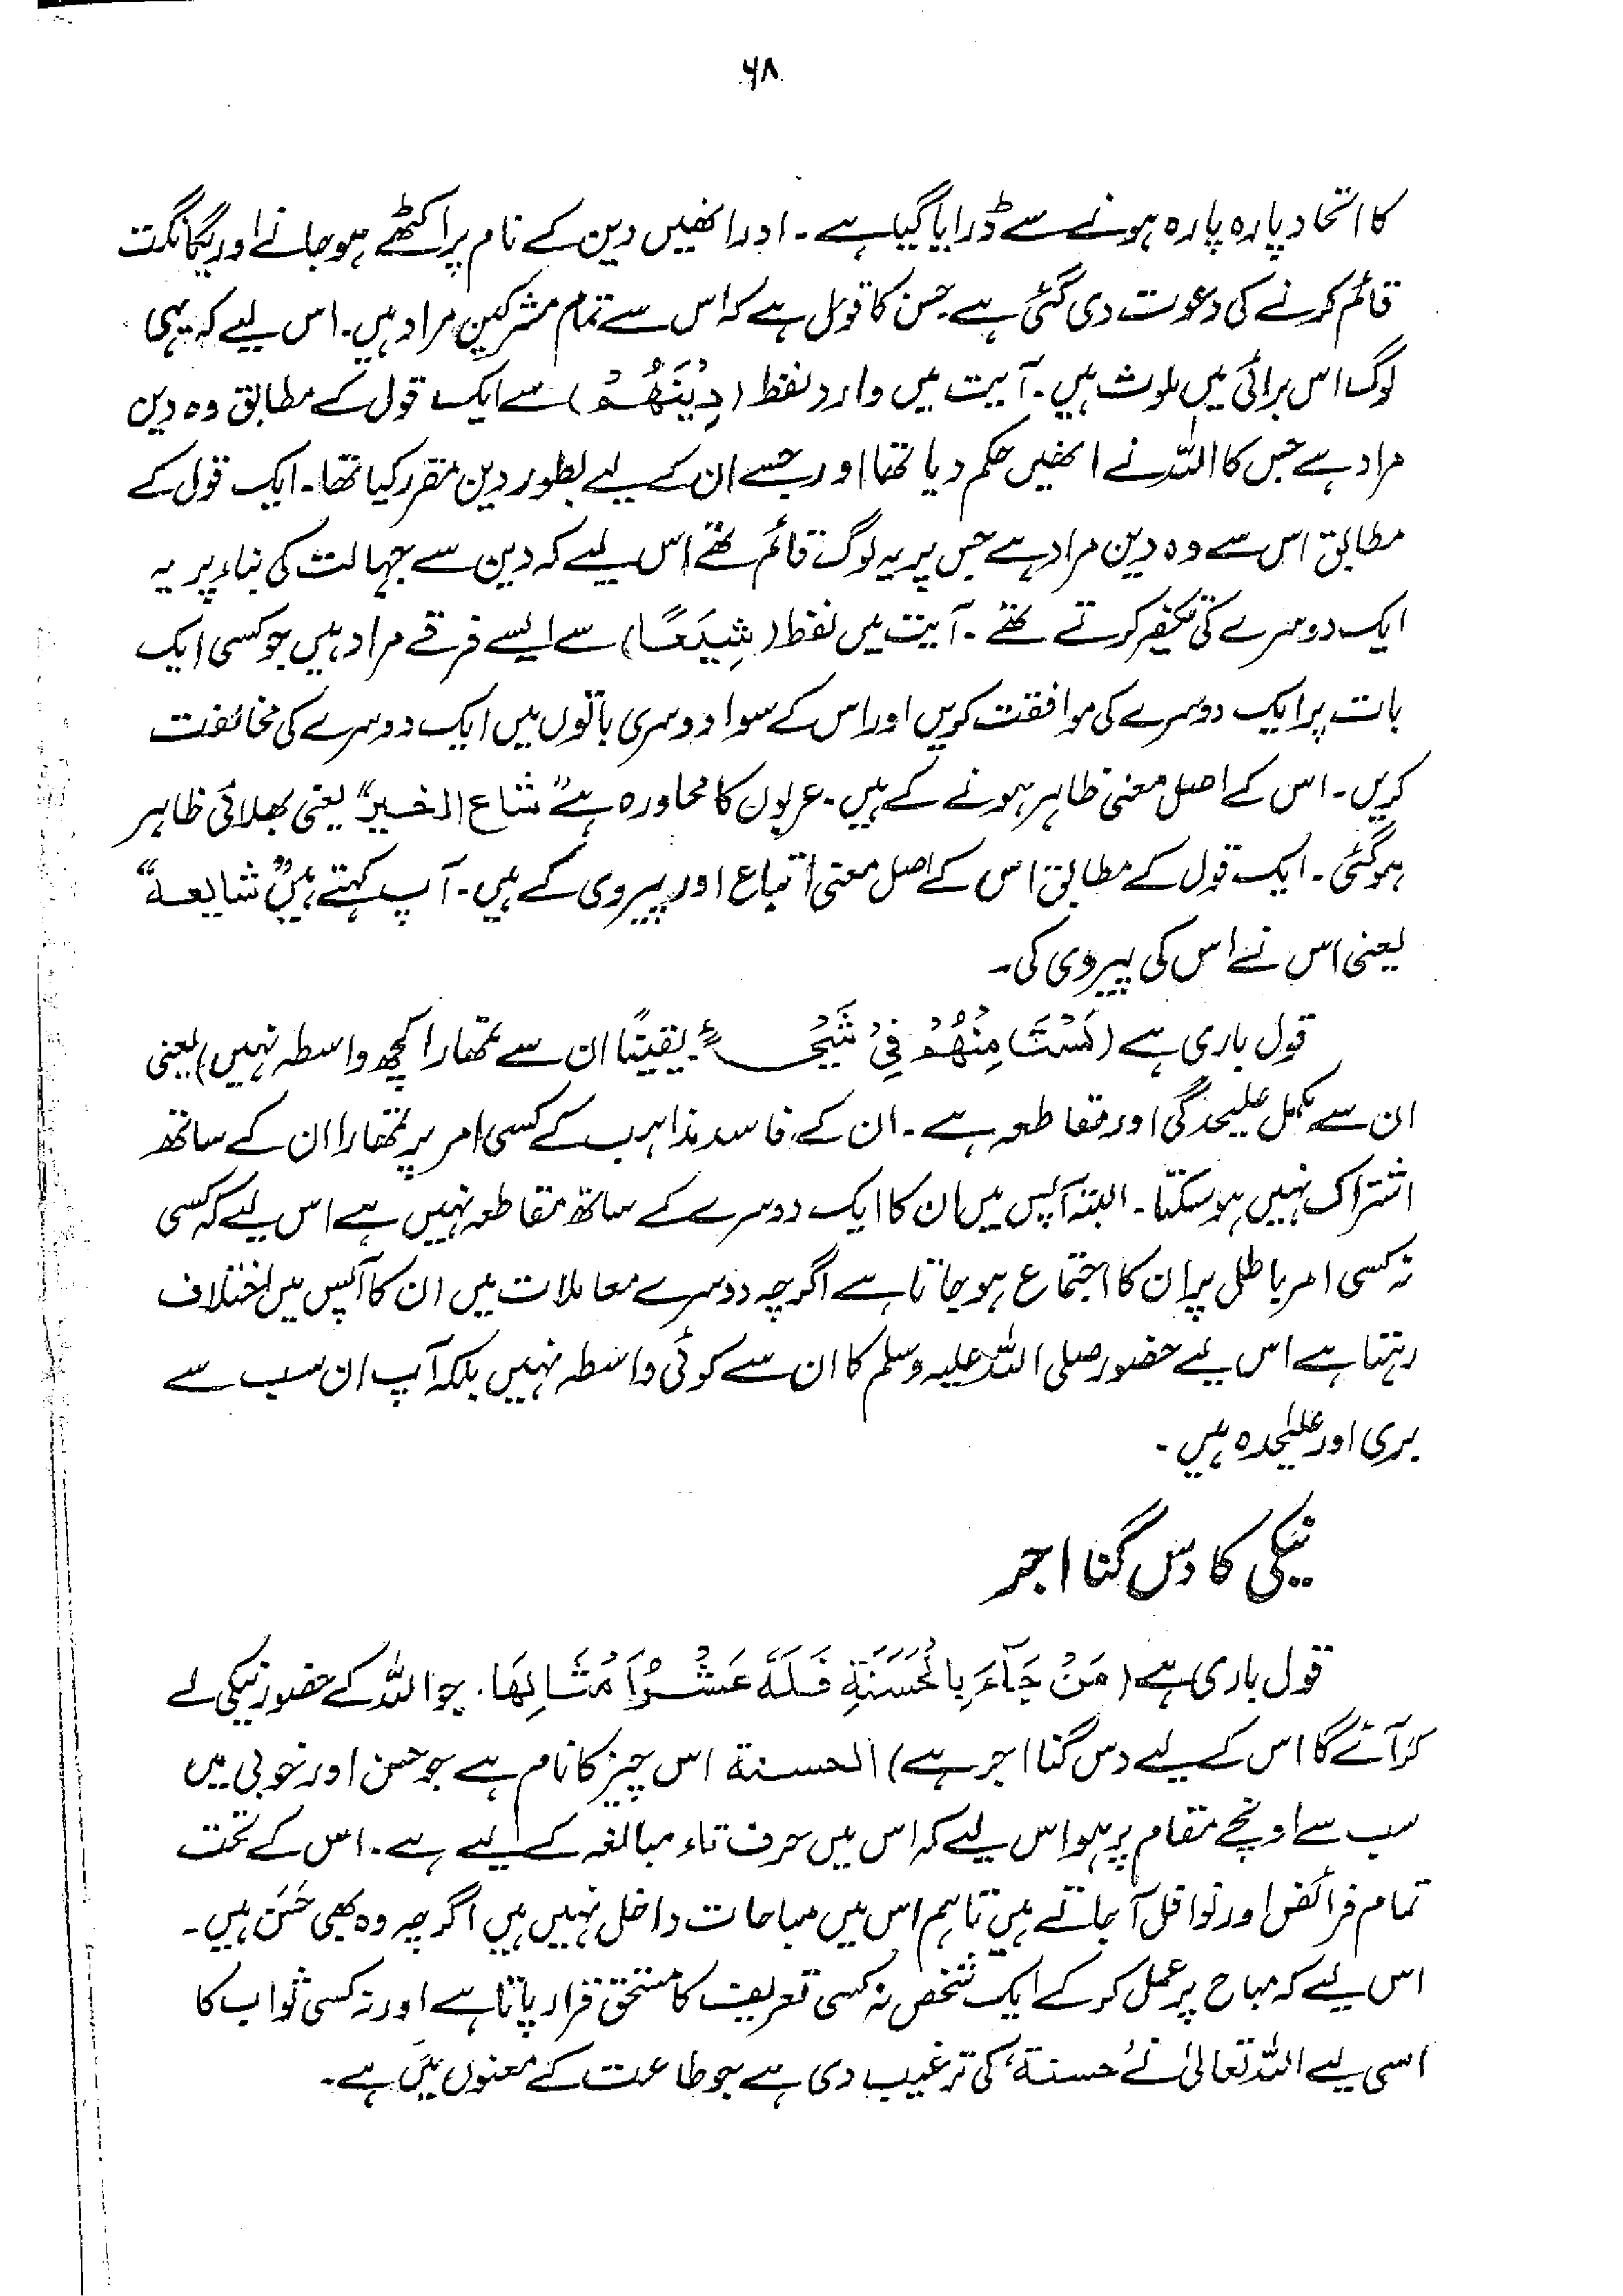 ۶۸
کا اتحاد پارہ پارہ ہونے سے ڈرایا گیا ہے۔ اور انھیں دین کے نام پر اکٹھے ہو جانے اور یگانگت
قائم کرنے کی دعوت دی گئی ہے۔ حسن کا قول ہے کہ اس سے تمام مشرکین مراد ہیں۔ اس لیے کہ یہی
لوگ اس برائی میں ملوث ہیں۔ آیت میں وارد لفظ (دِيْنَهُمْ) سے ایک قول کے مطابق وہ دین
مراد ہے جس کا اللہ نے انھیں حکم دیا تھا اور جسے ان کے لیے بطور دین مقرر کیا تھا۔ ایک قول کے
مطابق اس سے وہ دین مراد ہے جس پر یہ لوگ قائم تھے اس لیے کہ دین سے جہالت کی بناء پر یہ
ایک دوسرے کی تکفیر کرتے تھے۔ آیت میں لفظ (شِيَعًا) سے ایسے فرقے مراد ہیں جو کسی ایک
بات پر ایک دوسرے کی موافقت کریں اور اس کے سوا دوسری باتوں میں ایک دوسرے کی مخالفت
کریں۔ اس کے اصل معنی ظاہر ہونے کے ہیں۔ عربوں کا محاورہ ہے "شاع الخیر" یعنی بھلائی ظاہر
ہوگئی۔ ایک قول کے مطابق اس کے اصل معنی اتباع اور پیروی کے ہیں۔ آپ کہتے ہیں "شایعہ"
یعنی اس نے اس کی پیروی کی۔
قول باری ہے (لَسْتَ مِنْهُمْ فِيْ شَيْءٍ۔ یقینًا ان سے تمھارا کچھ واسطہ نہیں) یعنی
ان سے مکمل علیحدگی اور مقاطعہ ہے۔ ان کے فاسد مذاہب کے کسی امر پر تمھارا ان کے ساتھ
اشتراک نہیں ہو سکتا۔ البتہ آپس میں ان کا ایک دوسرے کے ساتھ مقاطعہ نہیں ہے اس لیے کہ کسی
نہ کسی امر باطل پر ان کا اجتماع ہو جاتا ہے اگرچہ دوسرے معاملات میں ان کا آپس میں اختلاف
رہتا ہے اس لیے حضور صلی اللہ علیہ وسلم کا ان سے کوئی واسطہ نہیں بلکہ آپ ان سب سے
بری اور علیٰحدہ ہیں۔
نیکی کا دس گنا اجر
قول باری ہے (مَنْ جَآءَ بِالْحَسَنَةِ فَلَهٗ عَشْرُ اَمْثَالِهَا۔ جو اللہ کے حضور نیکی لے
کر آئے گا اس کے لیے دس گنا اجر ہے) الحسنة اس چیز کا نام ہے جو حسن اور خوبی میں
سب سے اونچے مقام پر ہو اس لیے کہ اس میں حرف تاء مبالغہ کے لیے ہے۔ اس کے تحت
تمام فرائض اور نوافل آ جاتے ہیں تاہم اس میں مباحات داخل نہیں ہیں اگرچہ وہ بھی حَسَن ہیں۔
اس لیے کہ مباح پر عمل کر کے ایک شخص نہ کسی تعریف کا مستحق قرار پاتا ہے اور نہ کسی ثواب کا
اسی لیے اللہ تعالیٰ نے 'حسنة' کی ترغیب دی ہے جو طاعت کے معنوں میں ہے۔